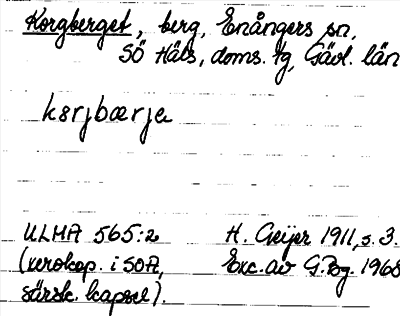 Korgberget, berg, Enångers sn,
Sö Häls, doms. tg, Gävl. län
kɜrjbærje
ULMA 565:2 H. Geijer 1911, s. 3.
(xerokop. i SOA, Exc. av G.Bg. 1968
särsk. kapsel).